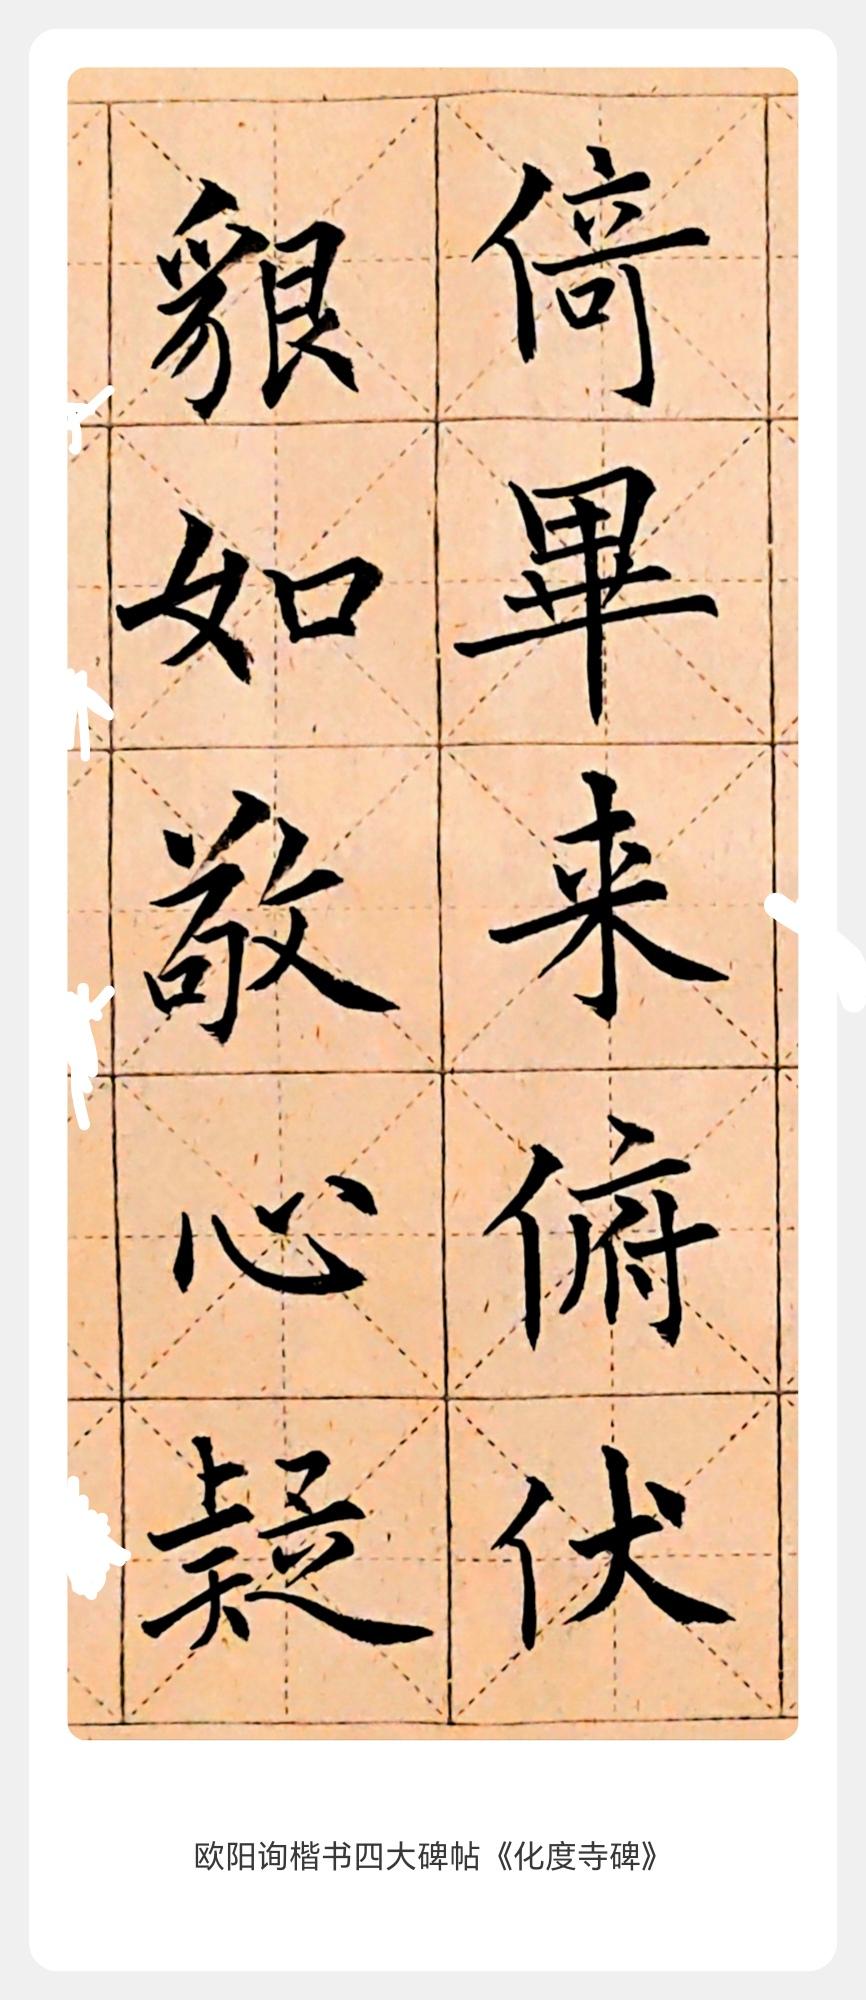 倚畢来俯伏
貇如敬心疑
欧阳询楷书四大碑帖《化度寺碑》